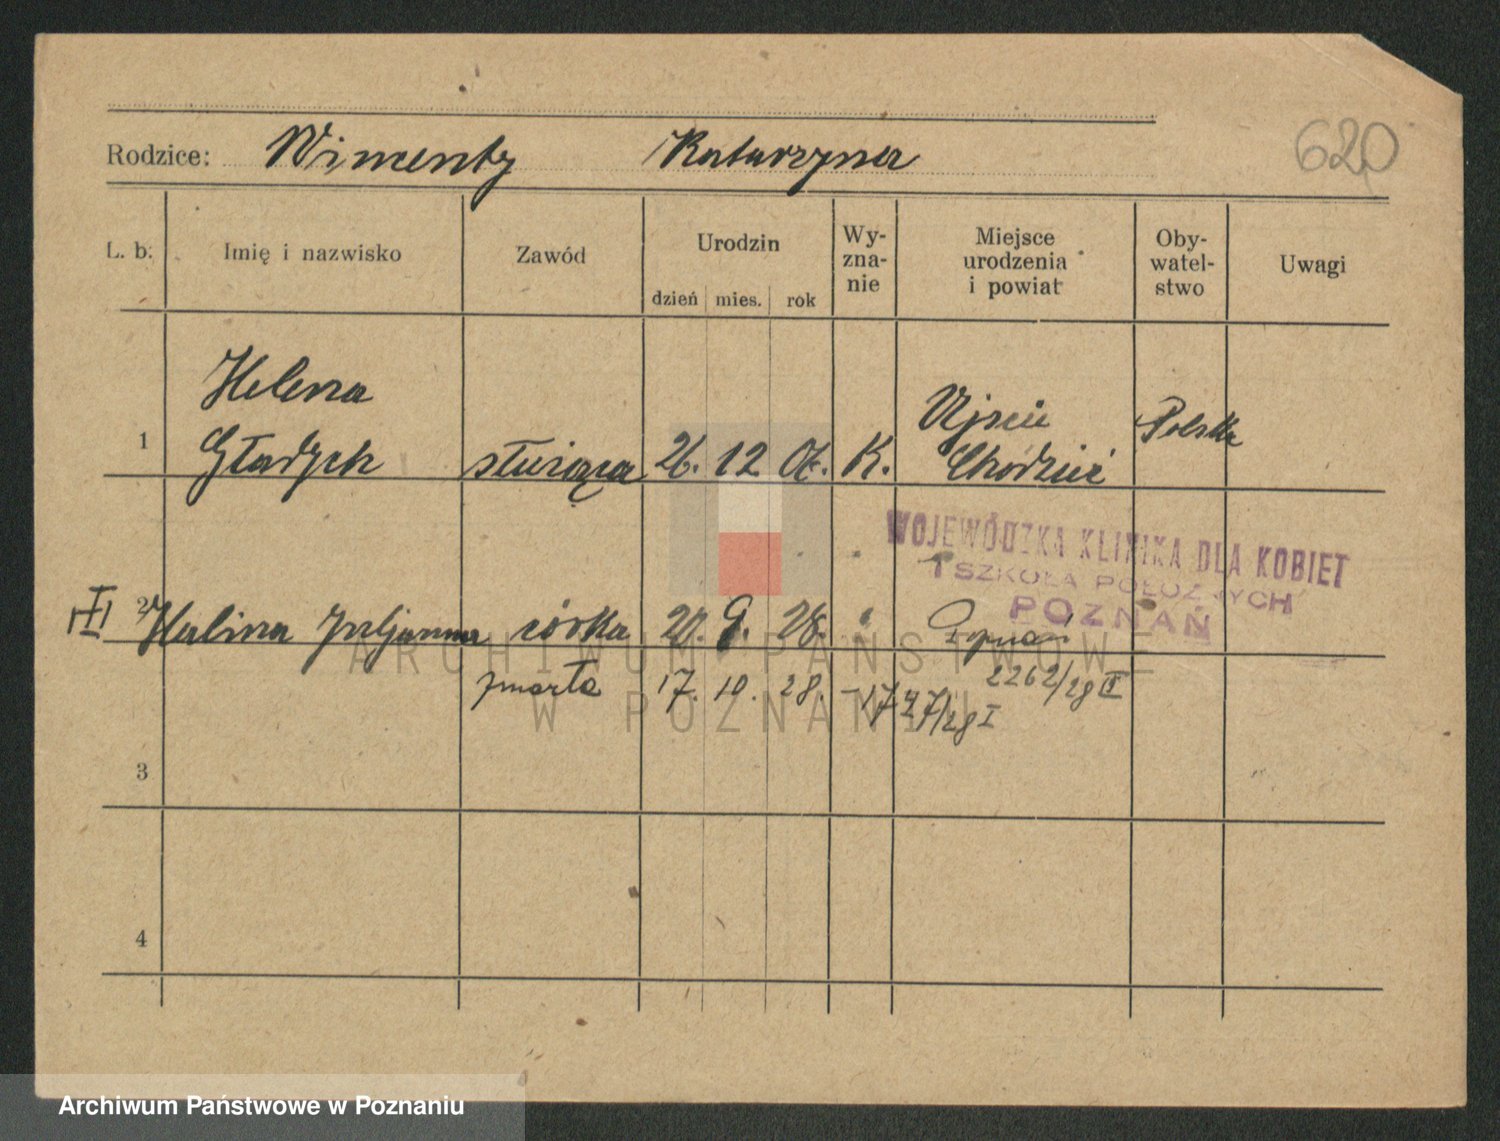 620
Rodzice: Wincenty Katarzyna
L. b. Imię i nazwisko Zawód Urodzin dzień mies. rok Wy- zna- nie Miejsce urodzenia i powiat Oby- watel- stwo Uwagi
Helena Ujście
1 Gładych służąca 26. 12 06. K. Chodzież Polska
WOJEWÓDZKA KLINIKA DLA KOBIET
I SZKOŁA POŁOŻNYCH
POZNAŃ
2 Halina córka 27. 9. 28. Poznań
zmarła 17. 10. 28. 2262/28 II
1747/28 I
3
4
ARCHIWUM PAŃSTWOWE
W POZNANIU
Archiwum Państwowe w Poznaniu